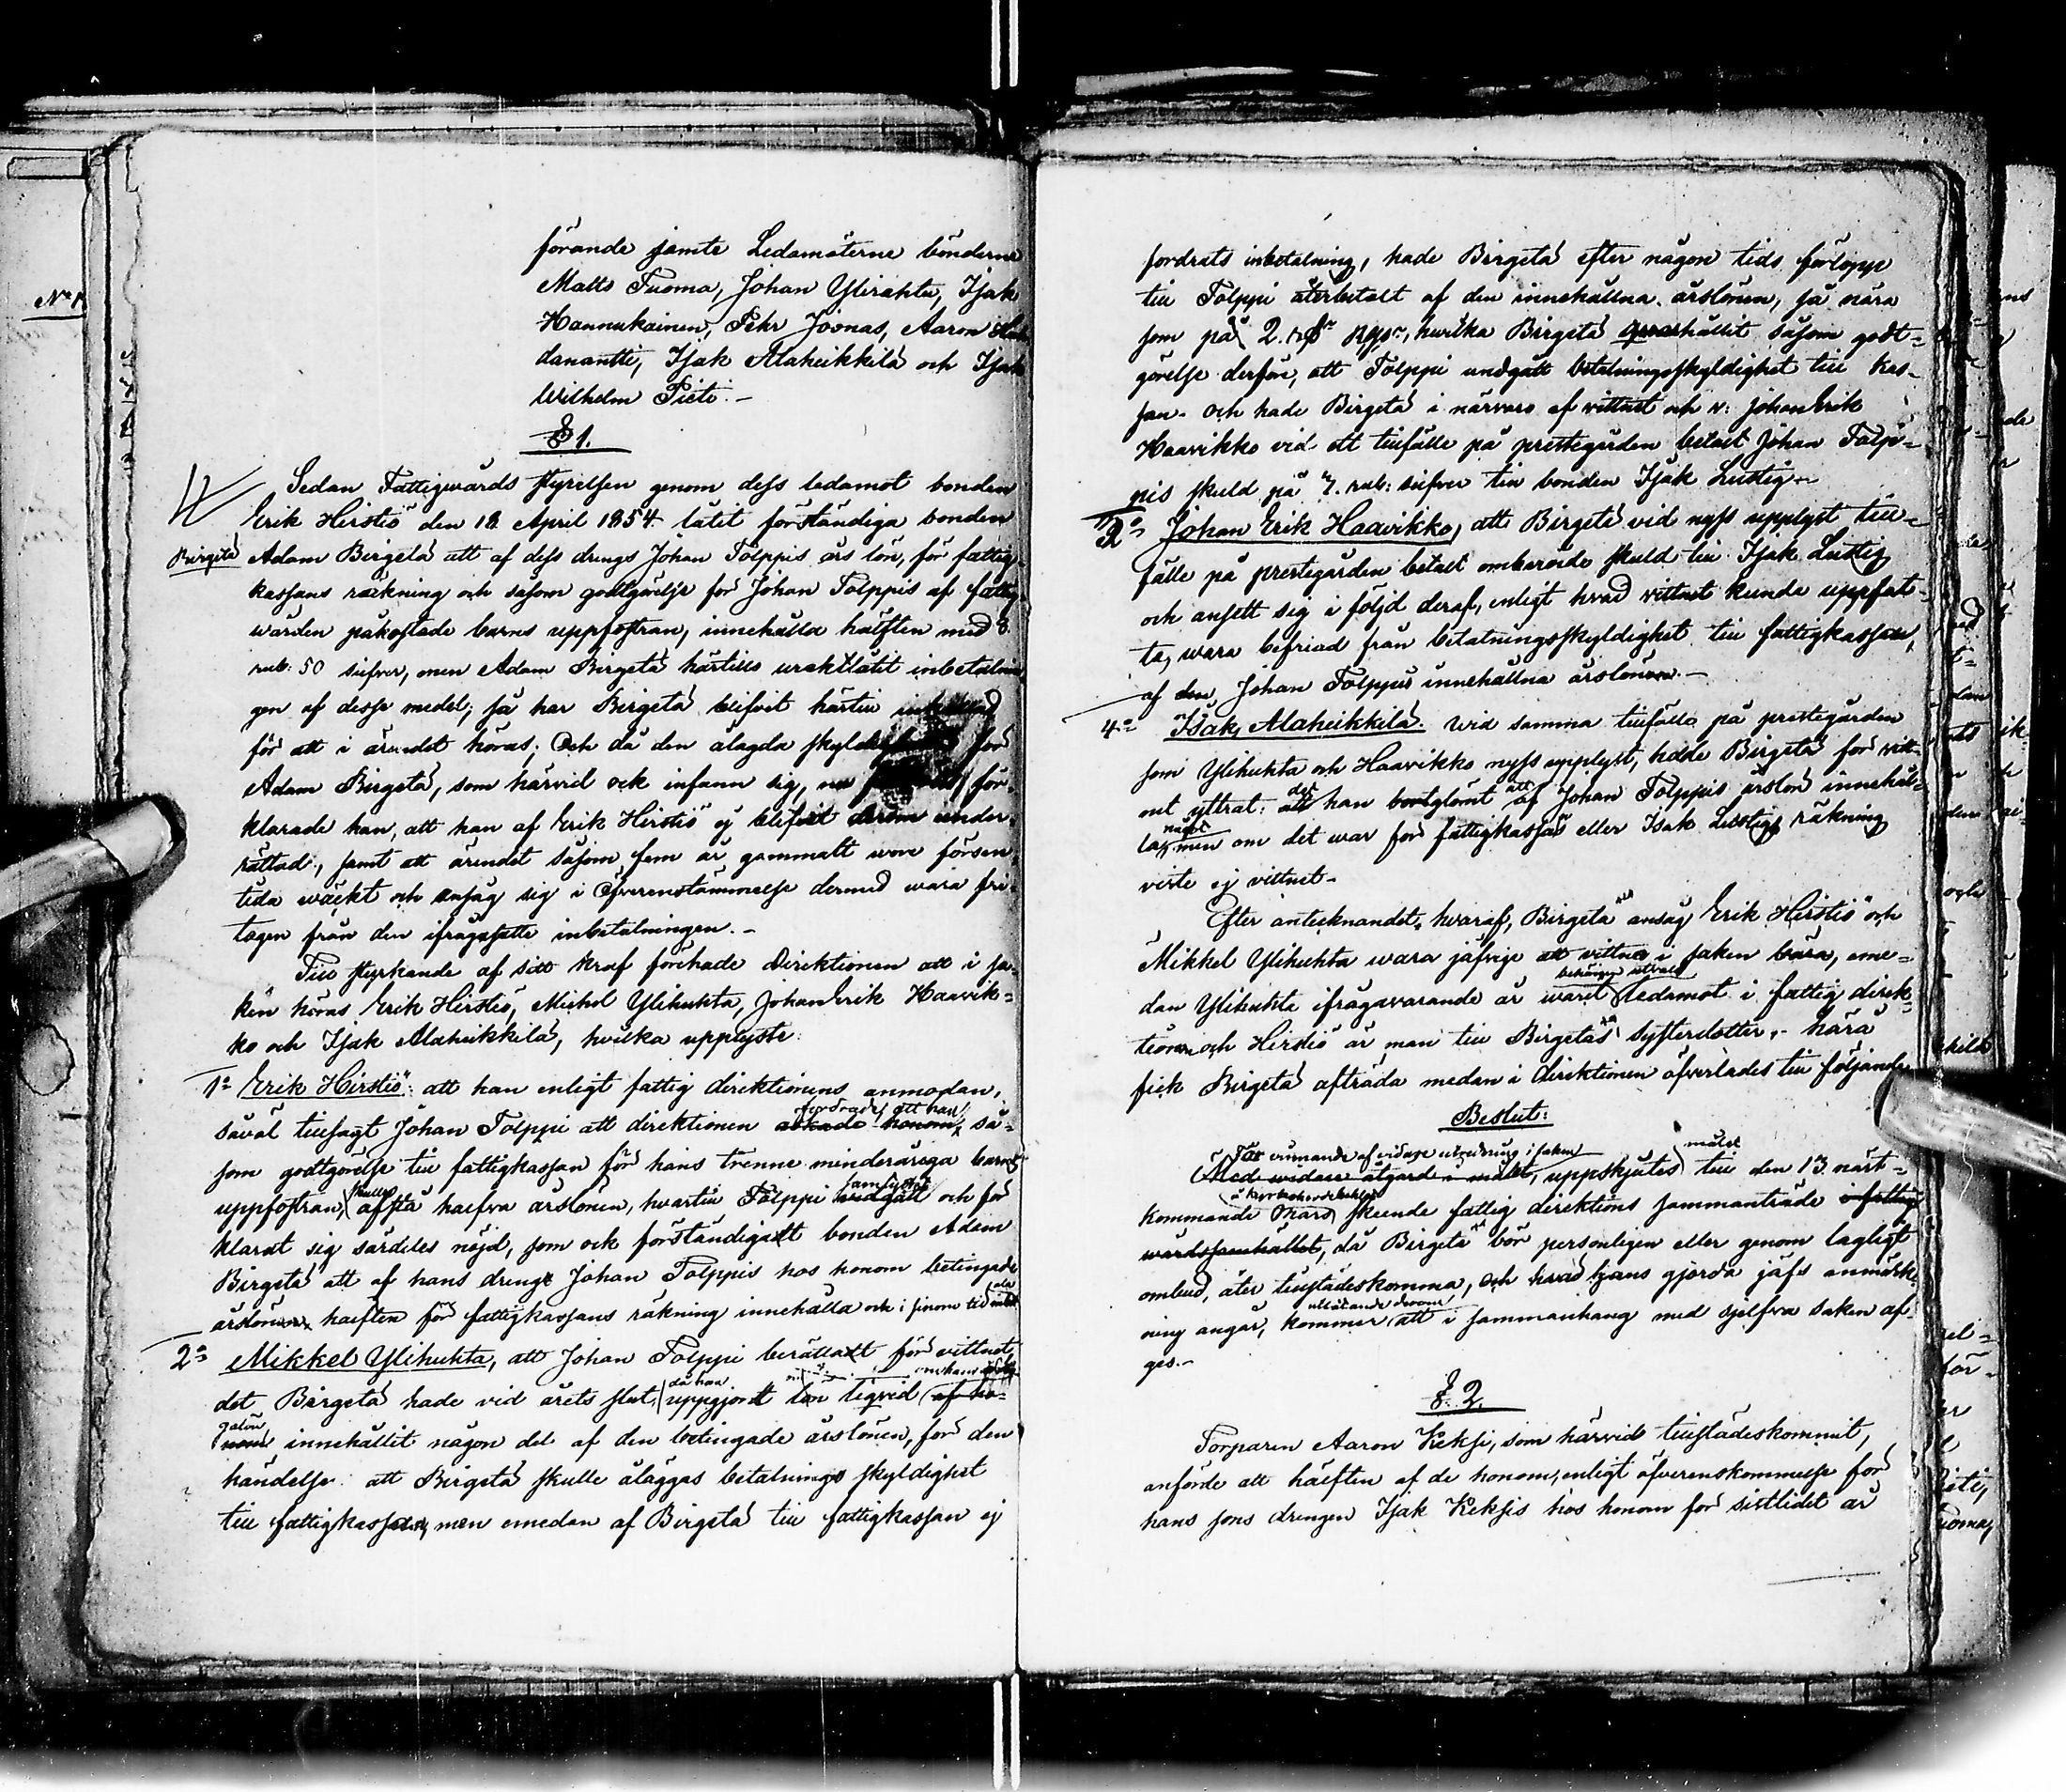 förande jemte Ledamöterne bönderne
Matts Tuoma, Johan Ylirahtu, Isak
Hannukainen, Pehr Joonas, Aaron
danantti, Isak Alaheikkilä och Isak
Wilhelm Pieti.-
§ 1.
Sedan Fattigwårds styrelsen genom dess ledamot bonden
Erik Hirstiö den 18 April 1854 låtit förständiga bonden
Birgetä Adam Birgetä att af dess drengs Johan Tolppis års lön, för fattig-
kassans räckning och såsom godtgörelse för Johan Tolppis af fattig-
wården påkostade barns uppfostran, innehålla hälften med 8
rub: 50 silfver, men Adam Birgetä härtills uraktlåtit inbetalnin-
gen af desse medel; så har Birgetä blifvit härtill
för att i ärendet höras; Och då den ålagda för
Adam Birgetä, som härvid ock infann sig, för-
klarade han, att han af Erik Hirstiö ej blifvit derom under-
rättad, samt att ärendet såsom fem år gammalt wore försen-
tida wäckt och ansåg sig i Öfverenstämmelse dermed wara fri-
tagen från den ifrågasatte inbetalningen.-
Till styrkande af sitt kraf förehade Direktionen att i sa-
ken höras Erik Hirstiö, Michel Ylihukta, Johan Erik Haavik-
ko och Isak Alaheikkilä, hvilka upplyste:
1o Erik Hirstiö: att han enligt fattig direktionens anmodan,
fordrade, att han
såväl tillsagt Johan Tolppi att direktionen askade honom, så-
som godtgörelse till fattigkassan för hans trenne minderåriga barns
skulle samtyckt
uppfostran, afstå halfva årslönen, hvartill Tolppi widgått och för
klarat sig särdeles nöjd, som ock förständigatt bonden Adam
Birgetä att af hans drengs Johan Tolppis hos honom betingade
årslönen, halften för fattigkassans räkning innehålla och i sinom tid
2o Mikkel Ylihukta, att Johan Tolppi berättatt för vittnet,
då han om hans
det Birgetä hade vid årets slut, uppgjordt lön liqvid af ho-
nom innehållit någon del af den betingade årslönen, för den
händelse att Birgetä skulle åläggas betalnings skyldighet
till fattigkassan, men emedan af Birgetä till fattigkassan ej
fordrats inbetalning, hade Birgetä efter någon tids förlopp
till Tolppi återbetalt af den innehållna årslönen, så nära
som på 2. hvilka Birgetä qvarhållit såsom godt-
görelse derföre, att Tolppi undgått betalningsskyldighet till kas-
san. och hade Birgetä i närvaro af vittnet och v: Johan Erik
Haavikko vid ett tillfälle på prestegården betalt Johan Tolp-
pis skuld på 7. rub: silfver till bonden Isak Lustig.-
Johan Erik Haavikko, att Birgetä vid nyss upplyst till-
fälle på prestegården betalt omberörde skuld till Isak Lustig
och ansett sig i följd deraf, enligt hvad vittnet kunde uppfat-
ta, wara befriad från betalningsskyldighet till fattigkassan,
af den Johan Tolppis innehållna årslönen.-
4o Isak Alaheikkilä. Wid samma tillfälle på prestegården
som Ylihukta och Haavikko nyss upplyst, hade Birgetä för vitt-
det att
net yttrat: att han bortglömt af Johan Tolppis årslön innehål-
något
la, men om det war för fattigkassans eller Isak Lustigs räkning
viste ej vittnet-
Efter antecknandet hvaraf, Birgetä ansåg Erik Hirstiö och
Mikkel Ylihukta wara jäfvige att vittna i saken bära, eme-
dan Ylihukta ifrågavarande år warit ledamot i fattig direk-
tionen och Hirstiö är man till Birgetäs systerdotter.- härå
fick Birgetä afträda medan i Direktionen öfverlades till följande
Beslut:
För vinnande af vidare utredning i saken målet
Med widare åtgärd i målet, uppskjutes till den 13 näst-
kommande Mars skeende fattig direktions sammanträde i fattig
wårdssamhället, då Birgetä bör personligen eller genom lagligt
ombud, åter tillstädeskomma, Och hvad hans gjorda jäfs anmärk-
utlåtande derom
ning angår, kommer att i sammanhang med sjelfva saken af-
ges.-
§. 2.
Torparen Aaron Keksi, som härvid tillstädeskommit,
anförde att hälften af de honom, enligt öfverenskommelse för
hans sons drengen Isak Keksis hos honom för sistlidet år